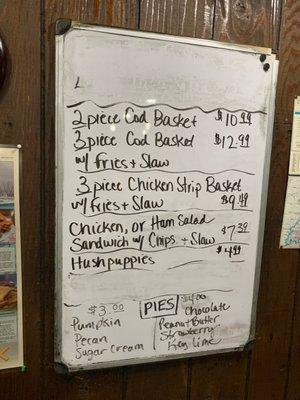 2 piece Cod Basket $10.99
3 piece Cod Basket $12.99
w/ fries + Slaw
3 piece Chicken Strip Basket
w/ fries + Slaw $9.49
Chicken, or Ham Salad $7.39
Sandwich w/ Chips + Slaw
Hushpuppies $4.99
$3.00 PIES $4.00
Pumpkin
Pecan
Sugar Cream
Chocolate
Peanut Butter
Strawberry
Key lime